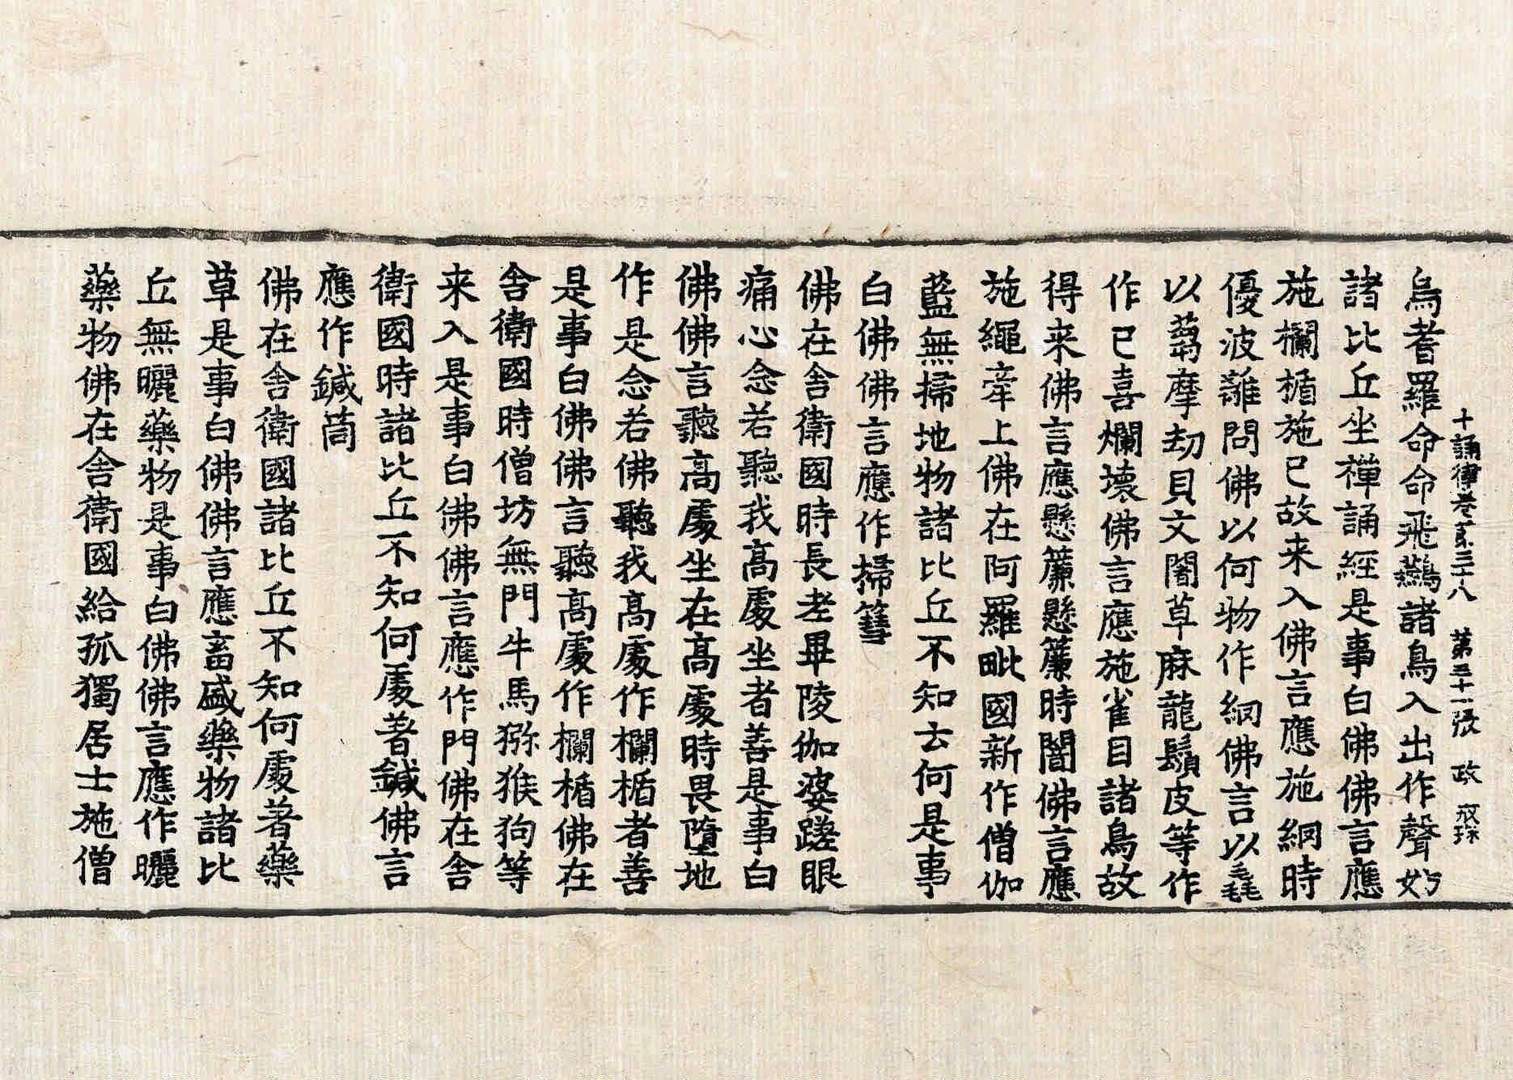 十誦律卷第三十八 第五十一張 政 戒珠
烏耆羅命命飛鷲諸鳥入出作聲妨
諸比丘坐禪誦經是事白佛佛言應
施欄楯施已故来入佛言應施網時
優波離問佛以何物作網佛言以毳
以蒭摩劫貝文闍草麻龍鬚皮等作
作已喜爛壞佛言應施雀目諸鳥故
得来佛言應懸簾懸簾時闇佛言應
施繩牽上佛在阿羅毗國新作僧伽
藍無掃地物諸比丘不知去何是事
白佛佛言應作掃篲
佛在舍衛國時長老畢陵伽婆蹉眼
痛心念若聽我高處坐者善是事白
佛佛言聽高處坐在高處時畏墮地
作是念若佛聽我高處作欄楯者善
是事白佛佛言聽高處作欄楯佛在
舍衛國時僧坊無門牛馬獼猴狗等
来入是事白佛佛言應作門佛在舍
衛國時諸比丘不知何處著鍼佛言
應作鍼筒
佛在舍衛國諸比丘不知何處著藥
草是事白佛佛言應畜盛藥物諸比
丘無曬藥物是事白佛佛言應作曬
藥物佛在舍衛國給孤獨居士施僧